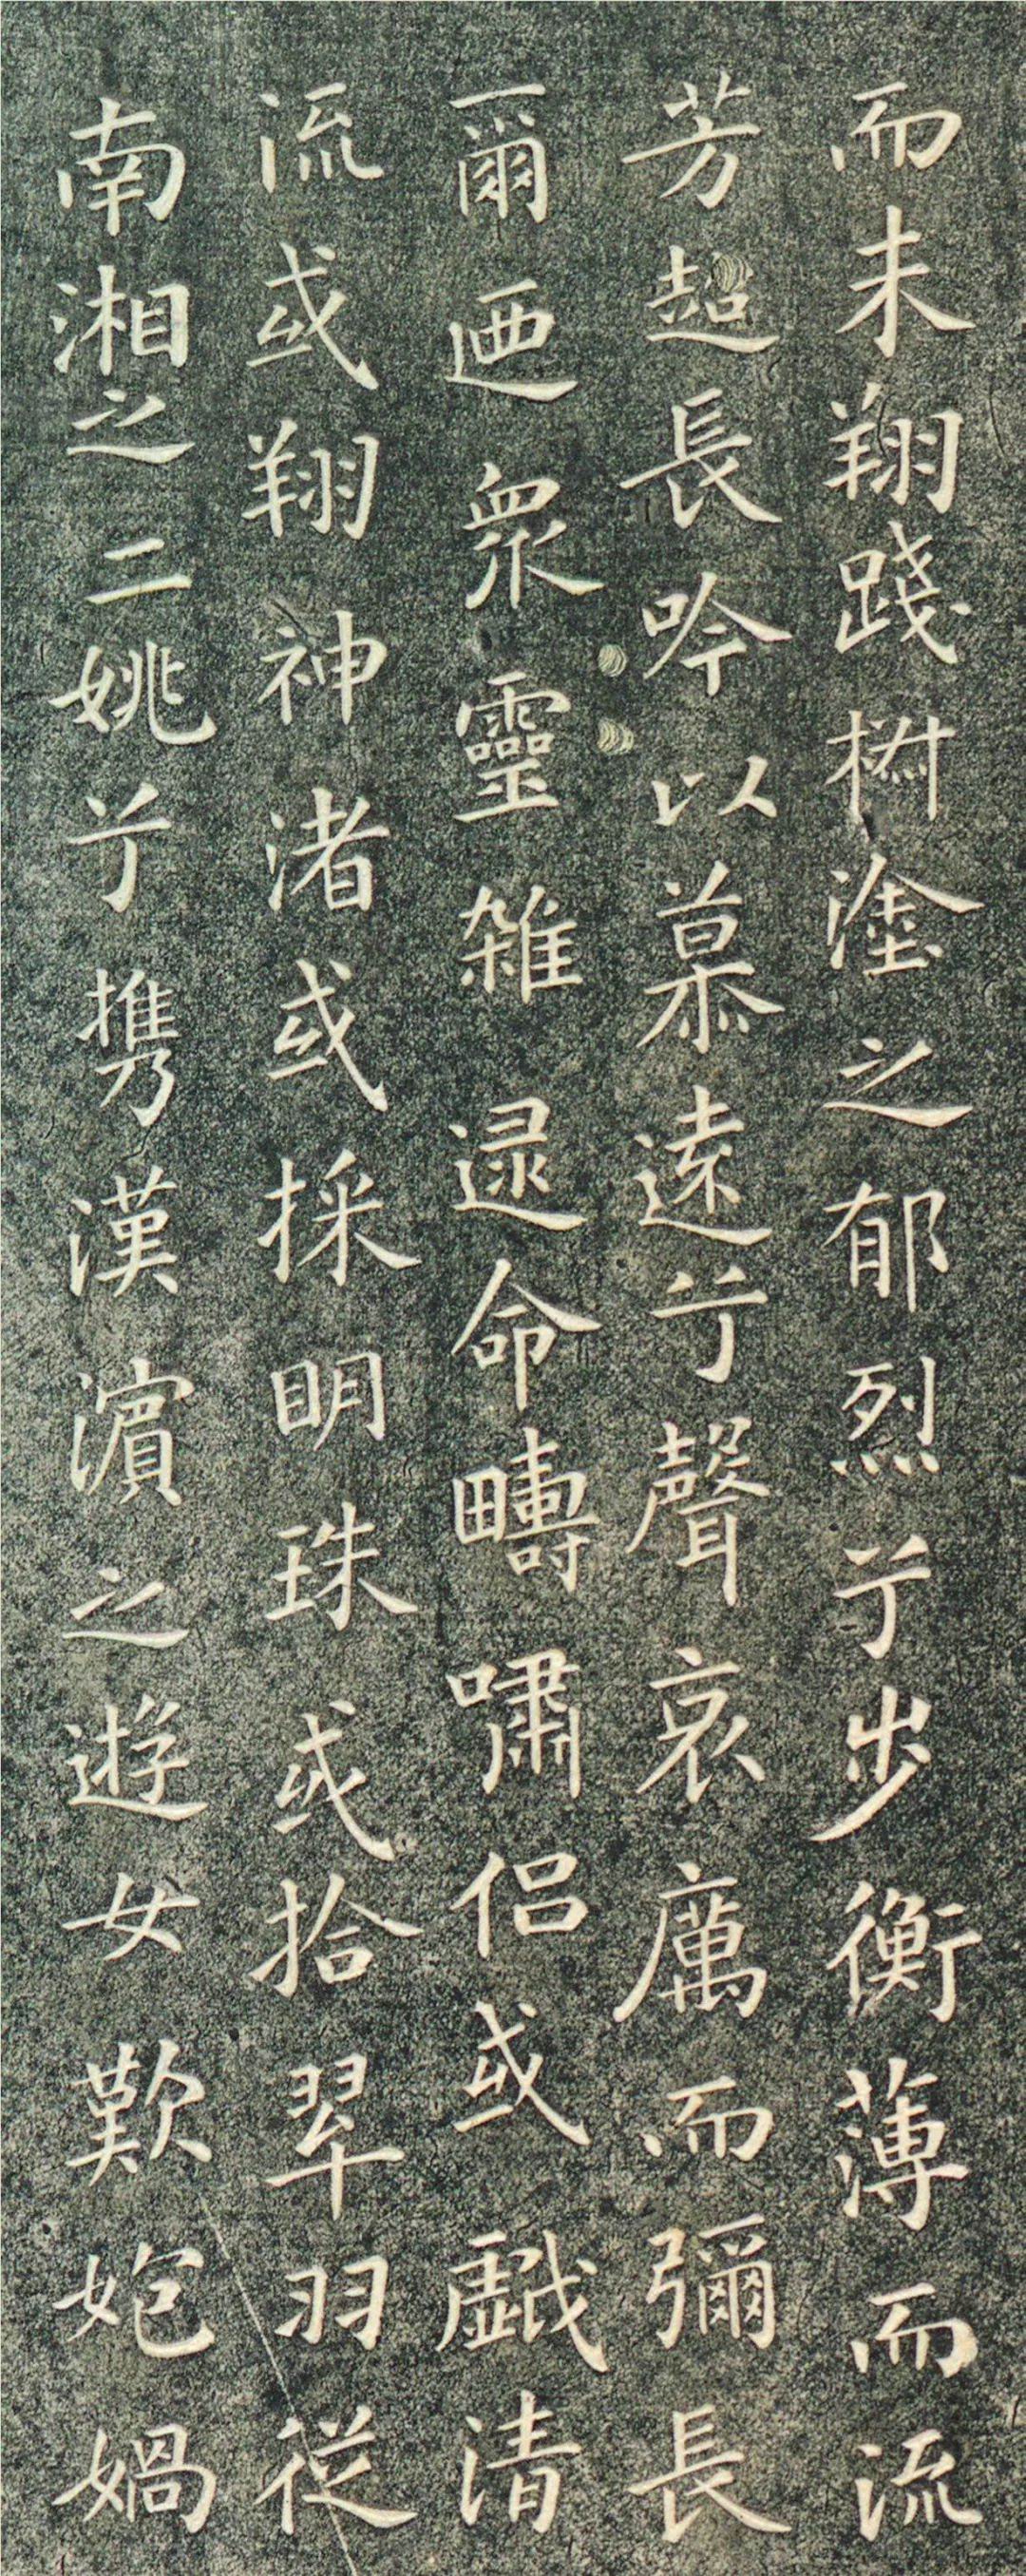 而未翔踐椒塗之郁烈兮步衡薄而流
芳超長吟以慕遠兮聲哀厲而彌長
爾迺衆靈雜逯命疇嘯侶或戲清
流或翔神渚或採明珠或拾翆羽従
南湘之二姚兮携漢濱之遊女歎㚿媧